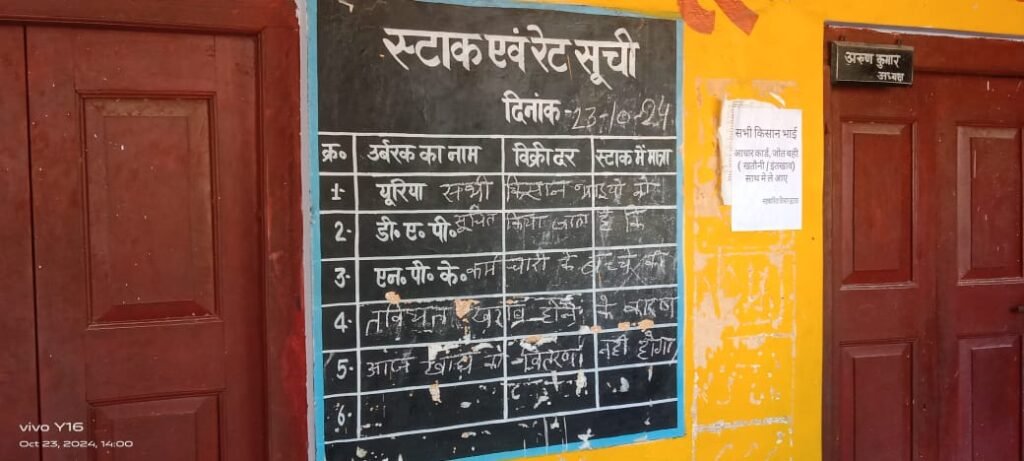 स्टाक एवं रेट सूची
दिनांक - 23-10-24
क्र० उर्बरक का नाम विक्री दर स्टाक में मात्रा
1- यूरिया सभी किसान भाइयो को
2- डी० ए० पी० सूचित किया जाता है कि
3- एन० पी० के० कर्मचारी के बच्चे की
4- तबियत खराब होने के कारण
5- आज खाद्य का वितरण नही होगा
6-
सभी किसान भाई
आधार कार्ड, जोत बही
( खतौनी / इंतखाब)
साथ मे ले आए
अरुण कुमार
अध्यक्ष
vivo Y16
Oct 23, 2024, 14:00